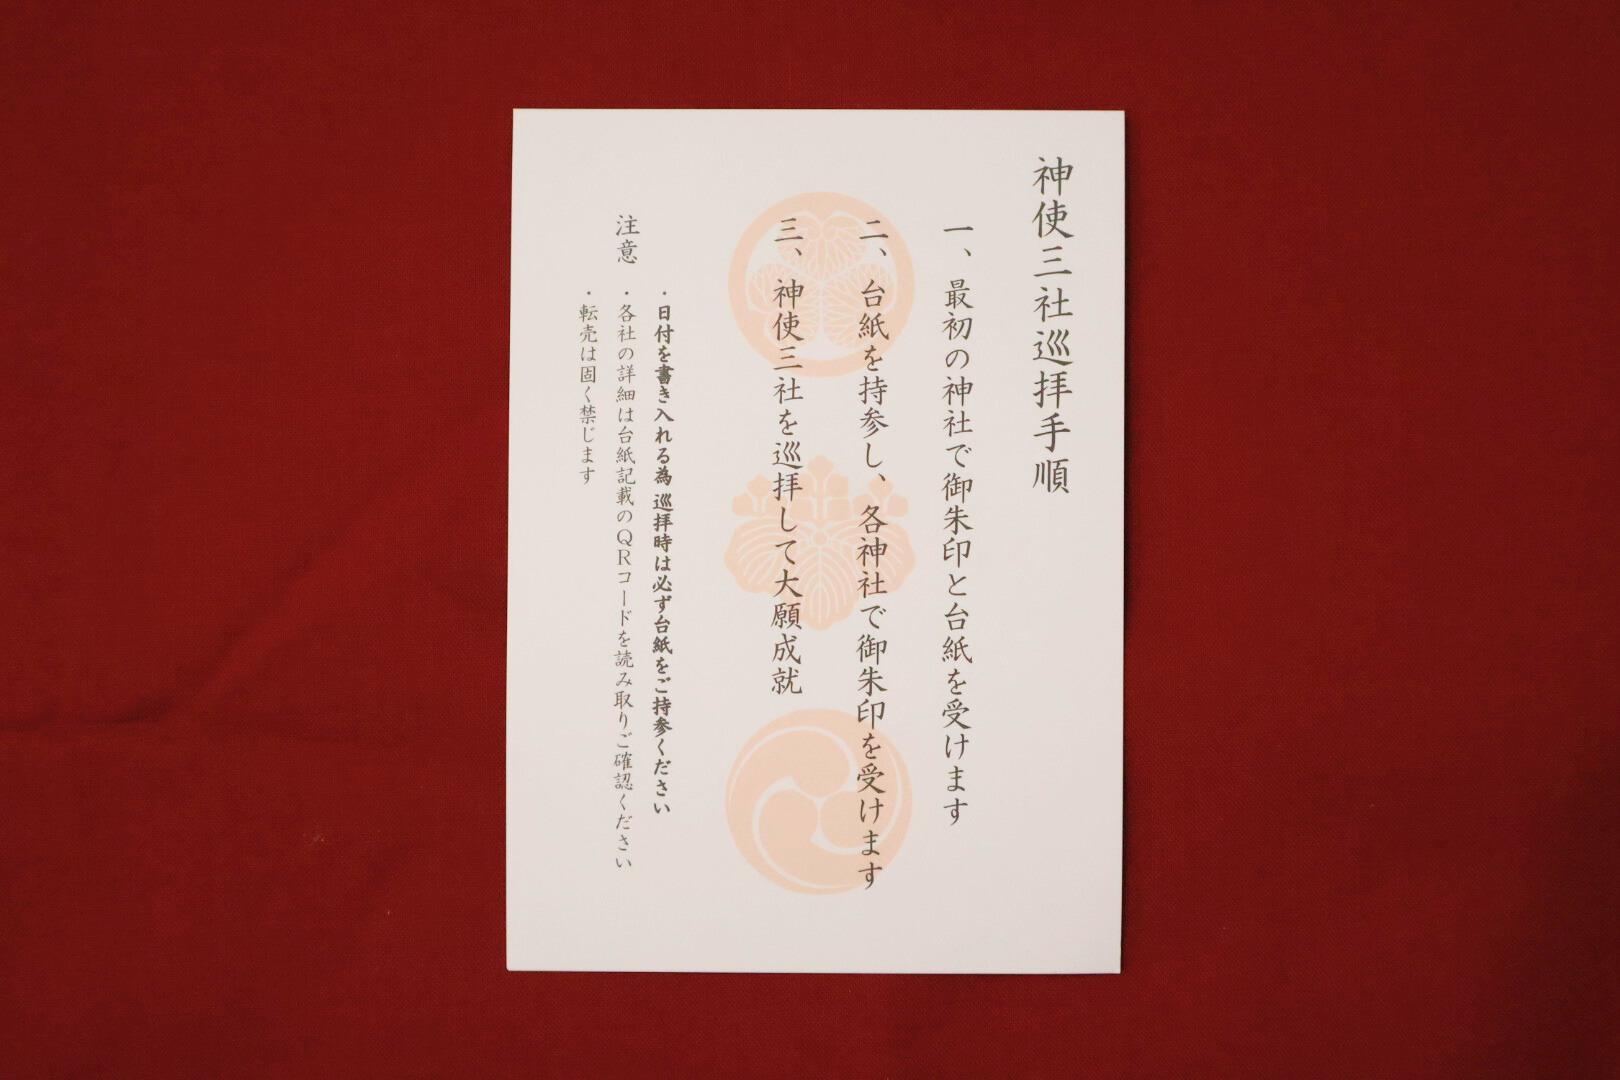 神使三社巡拝手順
一、最初の神社で御朱印と台紙を受けます
二、台紙を持参し、各神社で御朱印を受けます
三、神使三社を巡拝して大願成就
・日付を書き入れる為 巡拝時は必ず台紙をご持参ください
注意 ・各社の詳細は台紙記載のQRコードを読み取りご確認ください
・転売は固く禁じます